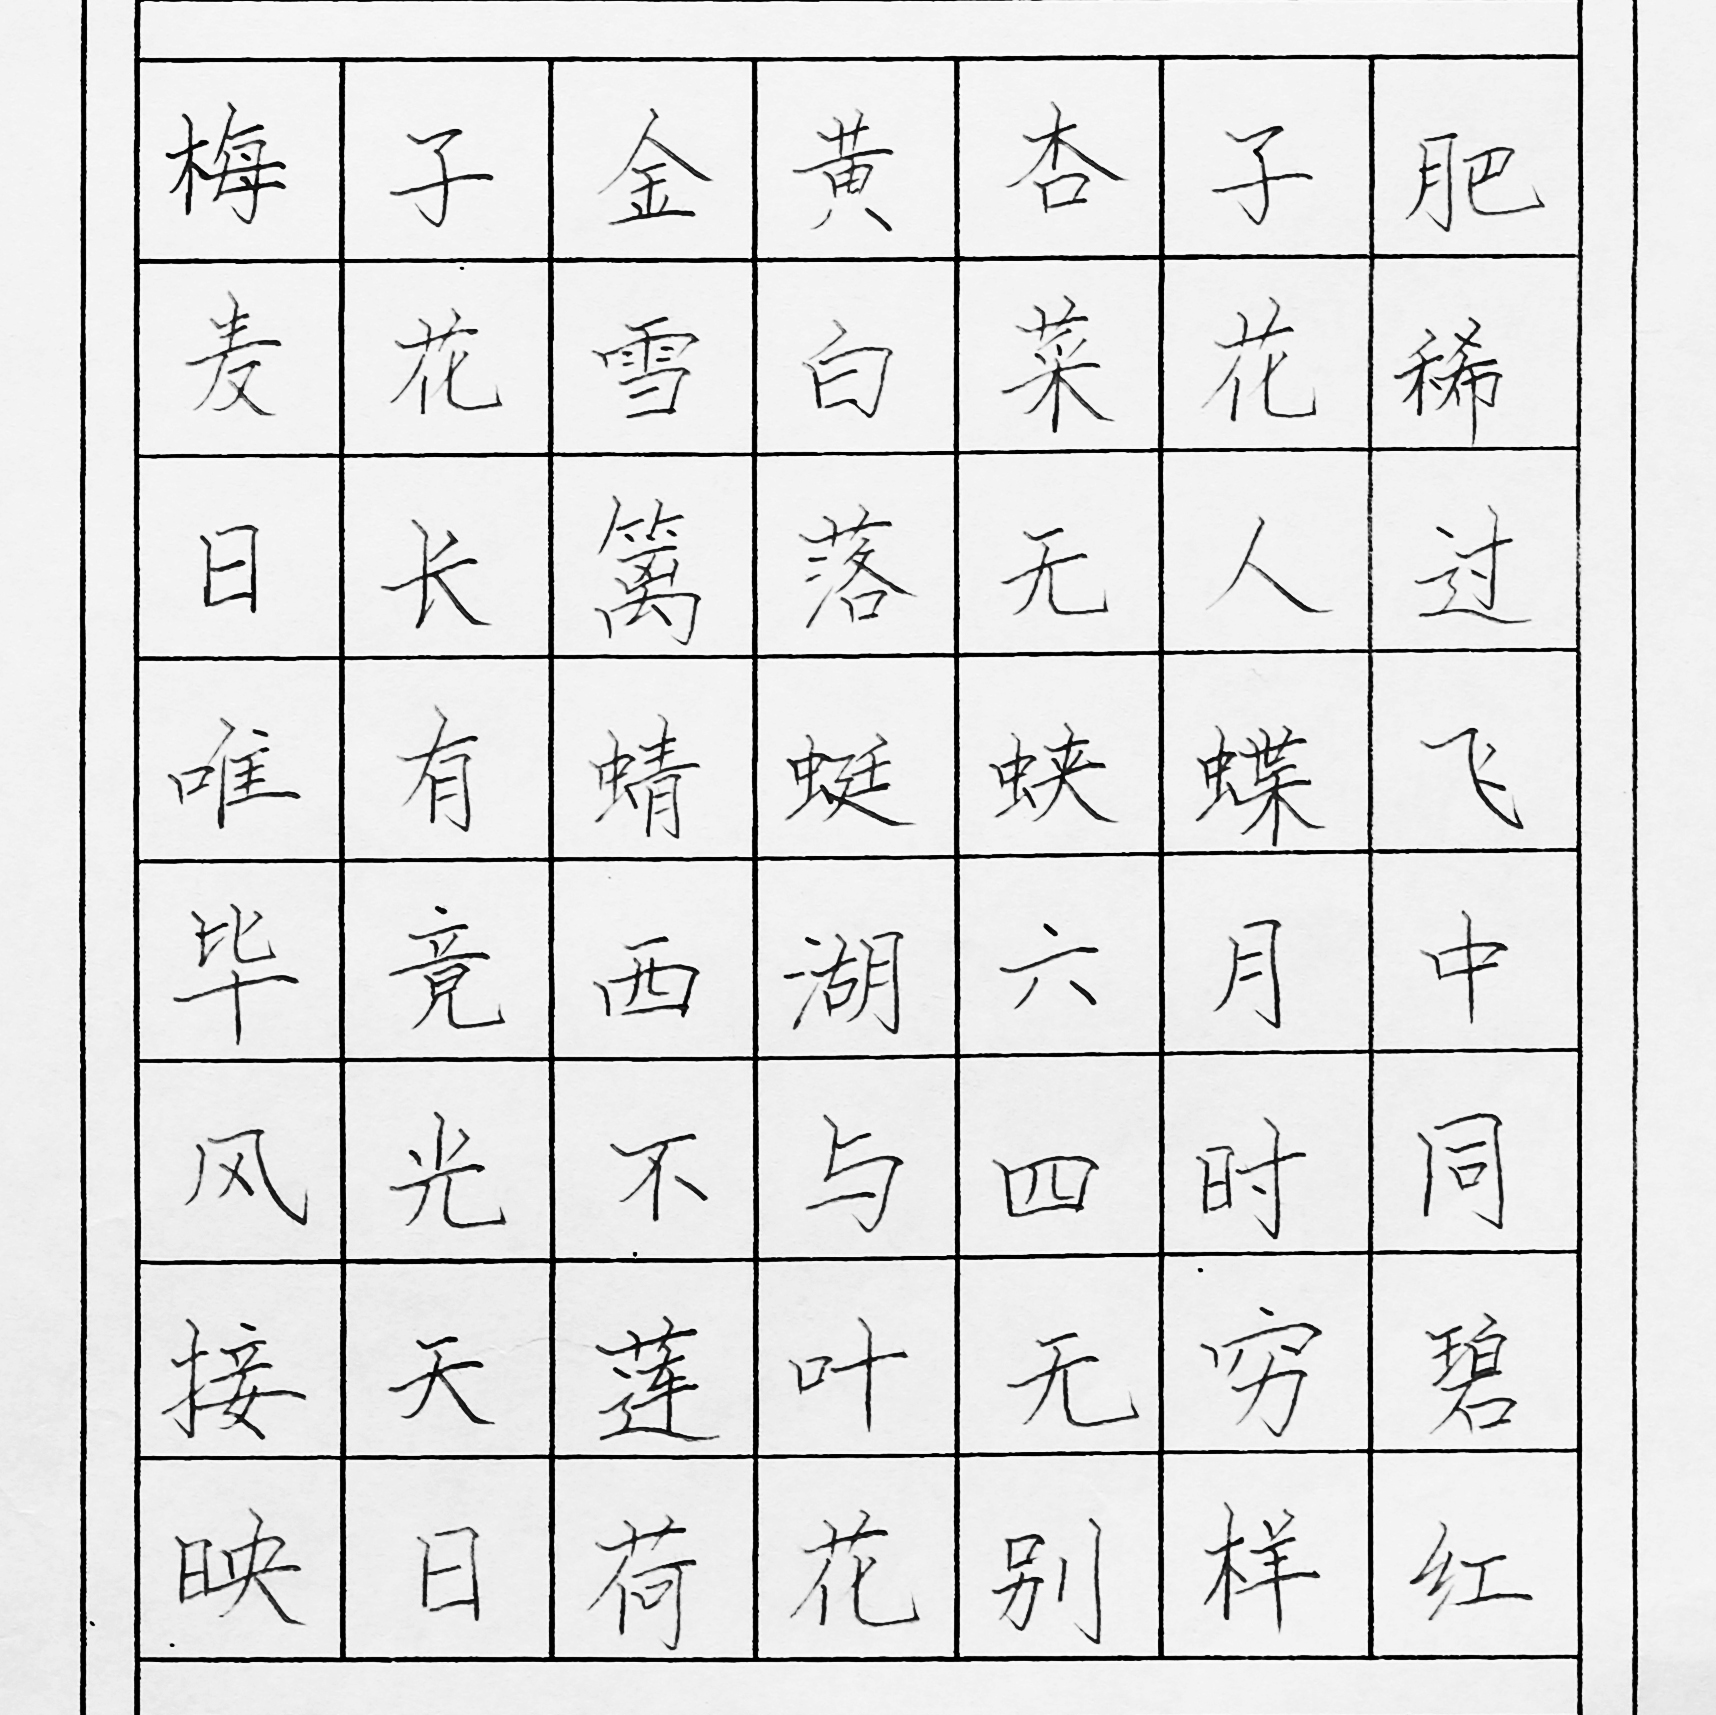 梅子金黄杏子肥
麦花雪白菜花稀
日长篱落无人过
唯有蜻蜓蛱蝶飞
毕竟西湖六月中
风光不与四时同
接天莲叶无穷碧
映日荷花别样红